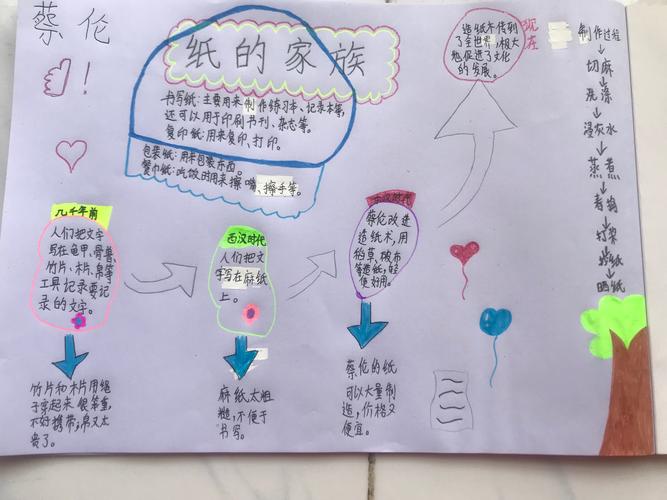 蔡伦
!
纸的家族
书写纸:主要用来制作练习本、记录本等,
还可以用于印刷书刊、杂志等。
复印纸:用来复印、打印。
包装纸:用来包装东西。
餐巾纸:吃饭时用来擦嘴、擦手等。
几千年前
人们把文字
写在龟甲、兽骨
竹片、木片、帛等
工具记录要记
录的文字。
竹片和木片用绳
子穿起来很笨重,
不好携带;帛又太
贵了。
西汉时代
人们把文
字写在麻纸
上。
麻纸太粗
糙,不便于
书写。
东汉时代
蔡伦改进
造纸术,用
稻草、破布
等造纸,轻
便好用。
蔡伦的纸
可以大量制
造,价格又
便宜。
现在
造纸术传到
了全世界,极大
地促进了文化
的发展。
制作过程
切麻
洗涤
浸灰水
蒸煮
舂捣
打浆
抄纸
晒纸